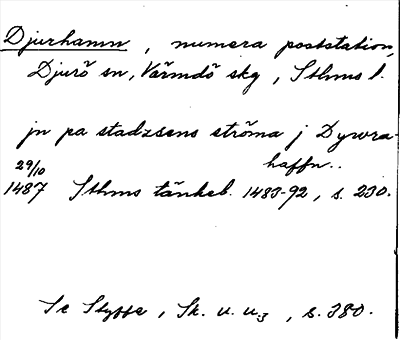 Djurhamn, numera poststation,
Djurö sn, Värmdö skg, Sthms l.
jn pa stadzsens ströma j Dywra-
haffn..
29/10
1487 Sthms tänkeb. 1483-92, s. 230.
Se Styffe, Sk. u. u.3, s. 380.